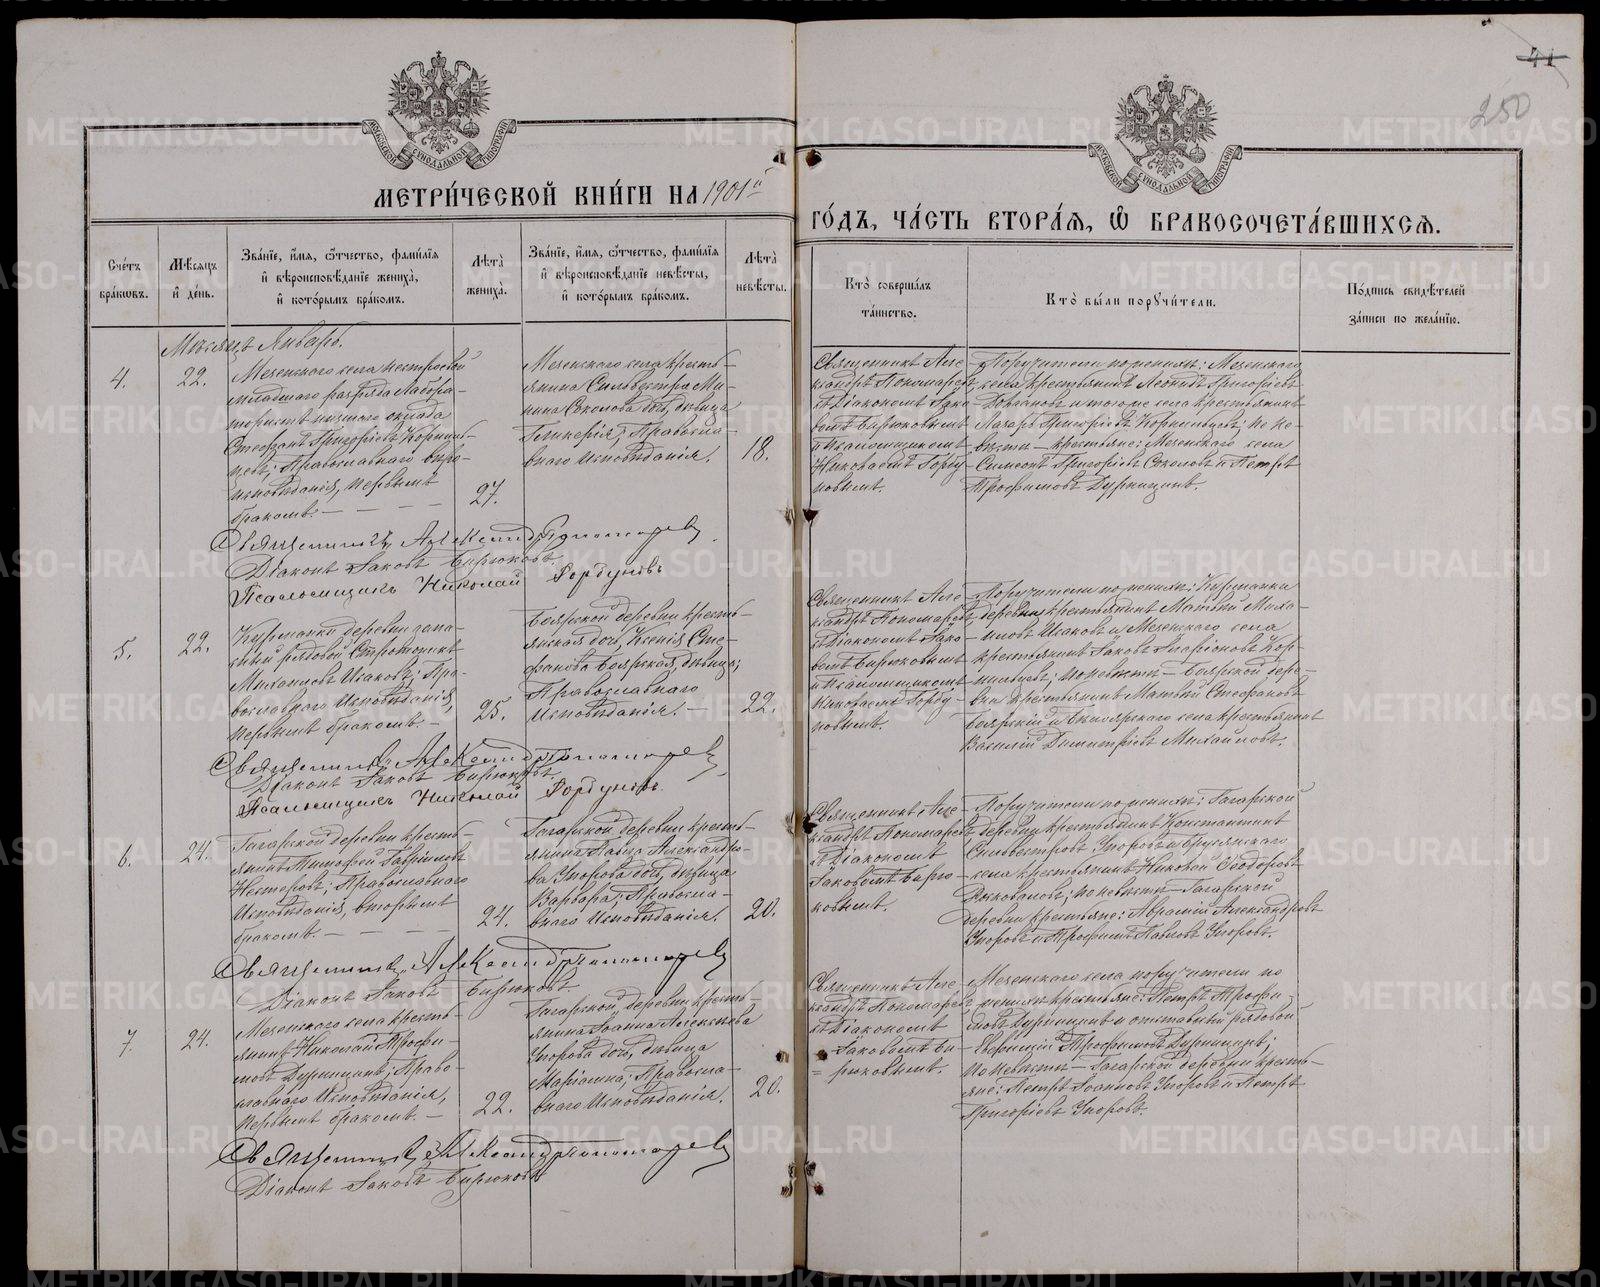 41
250
МЕТРИ́ЧЕСКОЙ КНИ́ГИ НА 1901й
ГО́ДЪ, ЧА́СТЬ ВТОРА́Я, Ѽ БРАКОСОЧЕТА́ВШИХСЯ.
Сче́тъ бра́ковъ.
Мѣ́сяцъ и де́нь.
Зва́нїе, и́мя, ѻ́тчество, фами́лїя
и вѣроисповѣ́данїе жениха̀,
и кото́рымъ бра́комъ.
Лѣта̀ жениха̀.
Зва́нїе, и́мя, ѻ́тчество, фами́лїя
и вѣроисповѣ́данїе невѣ́сты,
и кото́рымъ бра́комъ.
Лѣта̀ невѣ́сты.
Кто̀ соверша́лъ
та́инство.
Кто̀ бы́ли порꙋчи́тели.
По́дпись свидѣ́телей
за́писи по жела́нїю.
Мѣсяцъ Январь.
4.
22.
Мезенского села нестроевой
младшаго разряда Лабора-
тористъ низшаго оклада
Стефанъ Григоріевъ Корниль-
цевъ; Православнаго вѣро-
исповѣданія, первымъ
бракомъ.
27.
Мезенского села кресть-
янина Сильвестра Ми-
нина Соколова дочь, дѣвица
Гликерія; Правосла-
внаго Исповѣданія.
18.
Священникъ Але-
ксандръ Пономаревъ
съ Діакономъ Іако-
вомъ Бирюковымъ
и Псаломщикомъ
Николаемъ Горбу-
новымъ.
Поручители по женихѣ: Мезенского
села крестьянинъ Леонидъ Григоріевъ
Довгановъ и того же села крестьянинъ
Лазарь Григоріевъ Корнильцевъ; по не-
вѣстѣ – крестьяне: Мезенского села
Симеонъ Григоріевъ Соколовъ и Петръ
Трофимовъ Дурницынъ.
Священникъ Александръ Пономаревъ
Діаконъ Іаковъ Бирюковъ.
Псаломщикъ Николай Горбуновъ
5.
22.
Курманки деревни запа-
сный рядовой Стратоникъ
Михаиловъ Исаковъ; Пра-
вославнаго Исповѣданія,
первымъ бракомъ.
25.
Боярской деревни кресть-
янская дочь, Ксенія Сте-
фанова Боярская, дѣвица;
Православнаго
Исповѣданія.
22.
Священникъ Але-
ксандръ Пономаревъ
съ Діакономъ Іако-
вомъ Бирюковымъ
и Псаломщикомъ
Николаемъ Горбу-
новымъ.
Поручители по женихѣ: Курманки
деревни крестьянинъ Матвѣй Миха-
иловъ Исаковъ и Мезенского села
крестьянинъ Іаковъ Иларіоновъ Кор-
нильцевъ; по невѣстѣ – Боярской дере-
вни крестьянинъ Матвѣй Стефановъ
Боярскій и Бѣлоярскаго села крестьянинъ
Василій Димитріевъ Михайловъ.
Священникъ Александръ Пономаревъ
Діаконъ Іаковъ Бирюковъ.
Псаломщикъ Николай Горбуновъ.
6.
24.
Гагарской деревни кресть-
янинъ Тимофей Гавріиловъ
Нестеровъ; Православнаго
Исповѣданія, вторымъ
бракомъ.
24.
Гагарской деревни кресть-
янина Павла Александро-
ва Упорова дочь, дѣвица
Варвара; Правосла-
внаго Исповѣданія.
20.
Священникъ Але-
ксандръ Пономаревъ
съ Діакономъ
Іаковомъ Бирю-
ковымъ.
Поручители по женихѣ: Гагарской
деревни крестьянинъ Константинъ
Сильвестровъ Упоровъ и Брусянского
села крестьянинъ Николай Ѳеодоровъ
по невѣстѣ – Гагарской
деревни крестьяне: Аврамій Александровъ
Упоровъ и Трофимъ Павловъ Упоровъ.
Священникъ Александръ Пономаревъ
Діаконъ Іаковъ Бирюковъ
7.
24.
Мезенского села кресть-
янинъ Николай Трофи-
мовъ Дурницынъ; Право-
славнаго Исповѣданія,
первымъ бракомъ.
22.
Гагарской деревни кресть-
янина Іоанна Алексѣева
Упорова дочь, дѣвица
Маріамна; Правосла-
внаго Исповѣданія.
20.
Священникъ Але-
ксандръ Пономаревъ
съ Діакономъ
Іаковомъ Би-
рюковымъ.
Мезенского села поручители по
женихѣ крестьяне: Петръ Трофи-
мовъ Дурницынъ и отставный рядовой
Евфимій Трофимовъ Дурницынъ;
по невѣстѣ – Гагарской деревни кресть-
яне: Петръ Іоанновъ Упоровъ и Петръ
Григоріевъ Упоровъ.
Священникъ Александръ Пономаревъ
Діаконъ Іаковъ Бирюковъ
METRIKI.GASO-URAL.RU